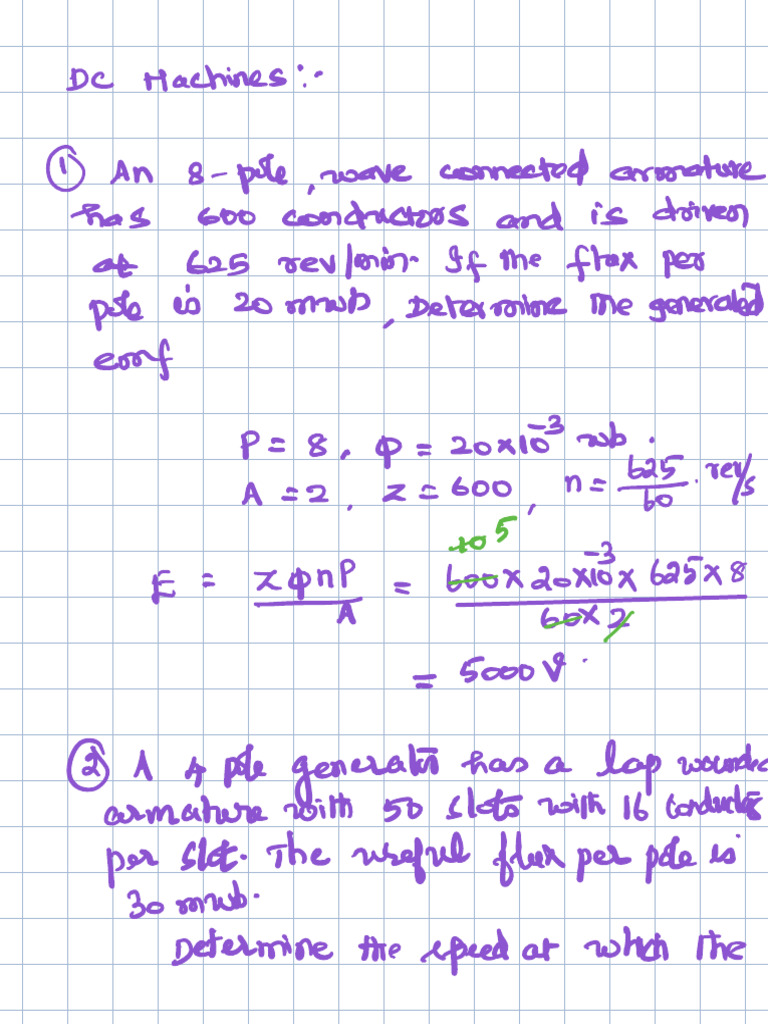 DC Machines :-
① An 8-pole, wave connected armature
has 600 conductors and is driven
at 625 rev/min. If the flux per
pole is 20 mwb, Determine the generated
emf
P = 8, φ = 20×10⁻³ wb.
A = 2, Z = 600, n = 625/60 rev/s
10 5
E = ZφnP/A = 600 × 20×10⁻³ × 625 × 8 / 60 × 2
= 5000 V.
② A 4 pole generator has a lap wounded
armature with 50 slots with 16 conductors
per slot. The useful flux per pole is
30 mwb.
Determine the speed at which the